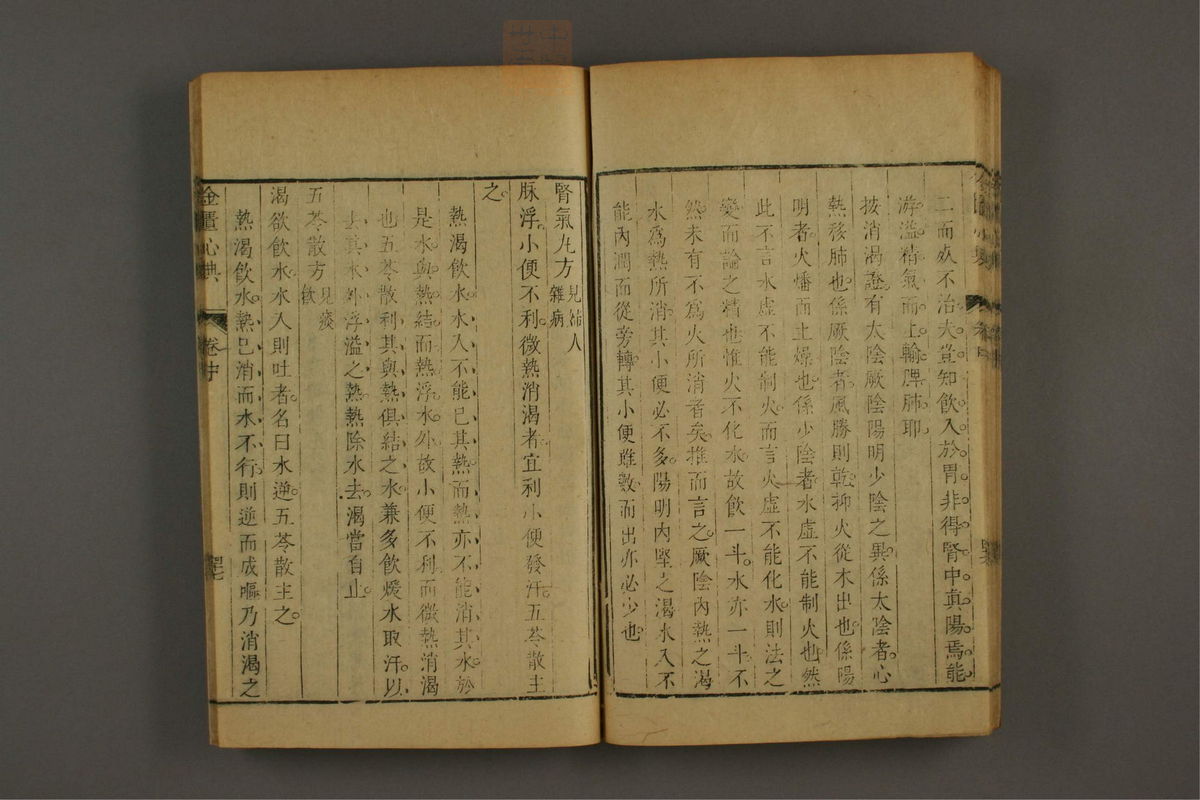 工而歧不治大豈知飲入於胃非得腎中真陽焉能
游溢精氣而上輸脾肺耶
按消渴證有太陰厥陰陽明少陰之異係太陰者心
熱移肺也係厥陰者風勝則乾抑火從木出也係陽
明者火燔而土燥也係少陰者水虛不能制火也然
此不言水虛不能制火而言火虛不能化水則法之
變而論之精也惟火不化水故飲一斗水亦一斗不
然未有不為火所消者矣推而言之厥陰內熱之渴
水為熱所消其小便必不多陽明內堅之渴水入不
能內潤而從旁轉其小便雖數而出亦必少也
腎氣丸方 見婦人雜病
脉浮小便不利微熱消渴者宜利小便發汗五苓散主
之
熱渴飲水水入不能已其熱而熱亦不能消其水於
是水與熱結而熱浮水外故小便不利而微熱消渴
也五苓散利其與熱俱結之水兼多飲煖水取汗以
去其水外浮溢之熱熱除水去渴當自止
五苓散方 見痰飲
渴欲飲水水入則吐者名曰水逆五苓散主之
熱渴飲水熱已消而水不行則逆而成嘔乃消渴之
金匱心典 卷中